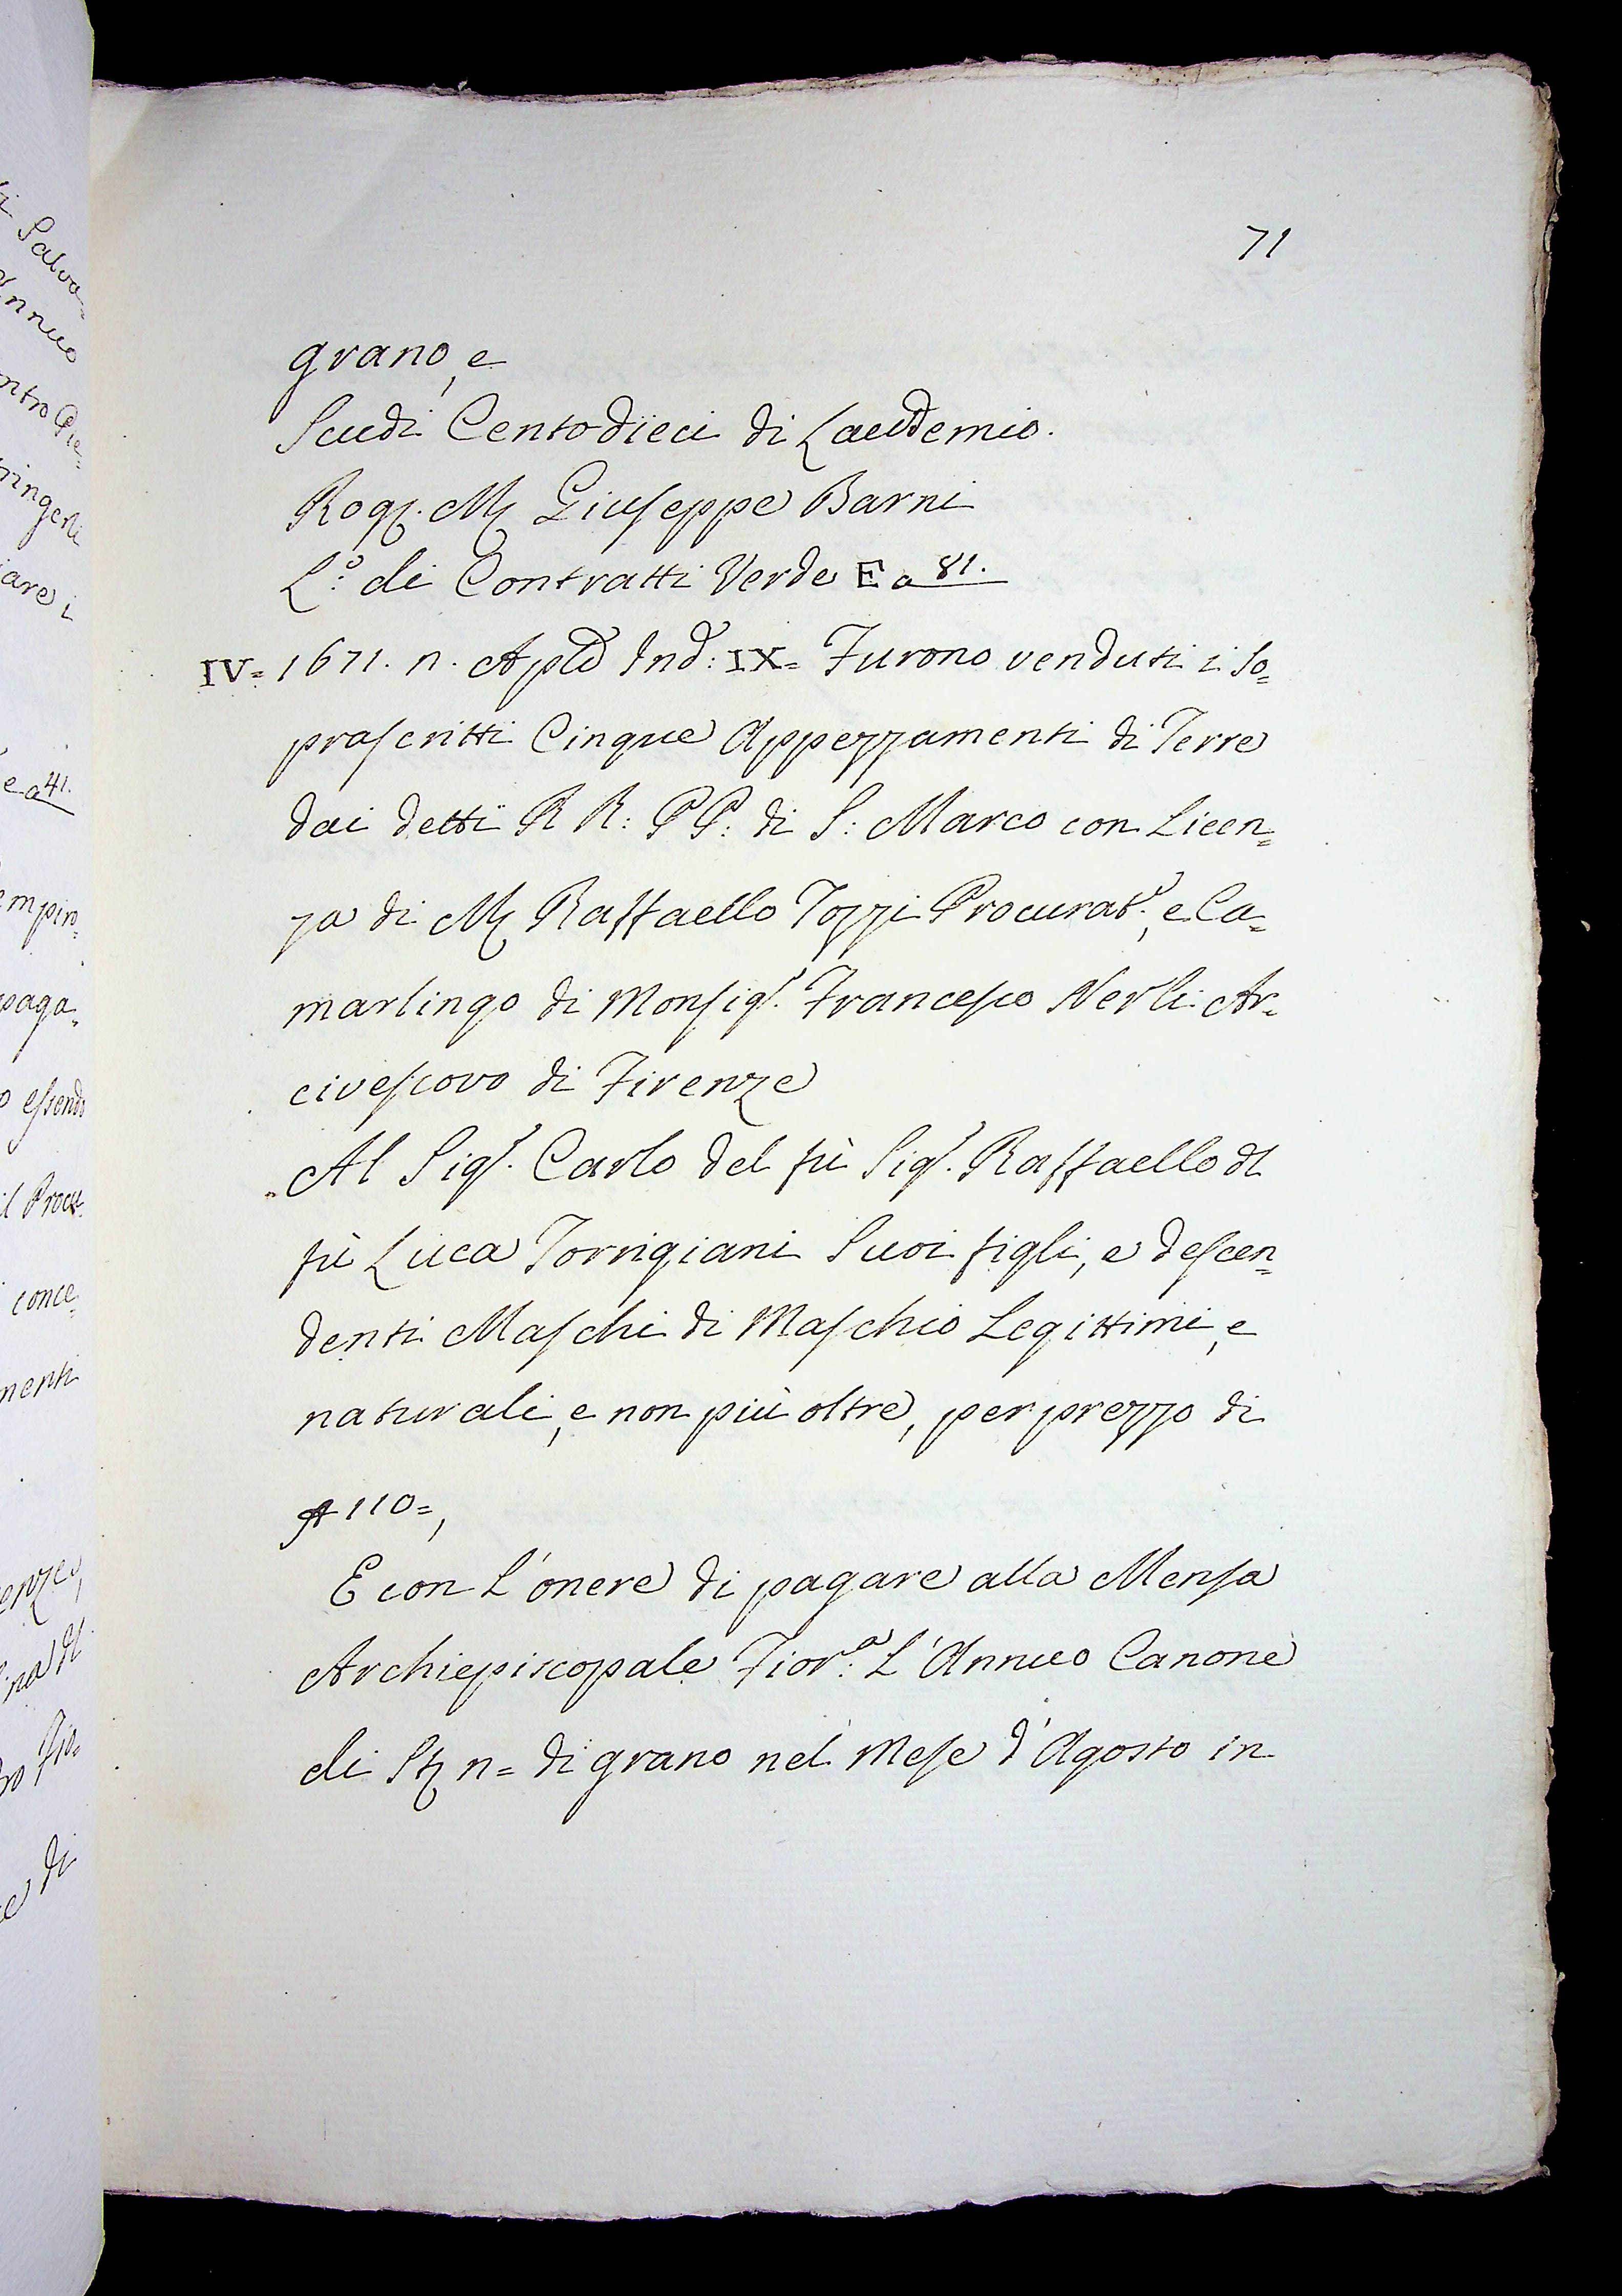 71
grano, e
Scudi Centodieci di Laudemio.
Rog. M Giuseppe Barni
L.º di Contratti Verde E a 81.
IV= 1671. n. Aple Ind: IX= Furono venduti i so=
prascritti Cinque Appezzamenti di Terre
dai detti R R: PP: di S: Marco con Licen=
za di M Raffaello Tozzi Procurat.r, e Ca=
marlingo di Monsig.r Francesco Nerli Ar=
civescovo di Firenze
Al Sig.r Carlo del fù Sig.r Raffaello dl
fù Luca Torrigiani Suoi figli, e descen=
denti Maschi di Maschio Legittimi, e
naturali, e non più oltre, per prezzo di
110=,
E con l'onere di pagare alla Mensa
Archiepiscopale Fior.a: L'Annuo Canone
di St n= di grano nel Mese d'Agosto in
Salva=
Annuo
ntro Pie=
tringerli
iare i
e a 41.
empiro=
paga=
o essendo
il Procu=
conce=
menti
enze,
di